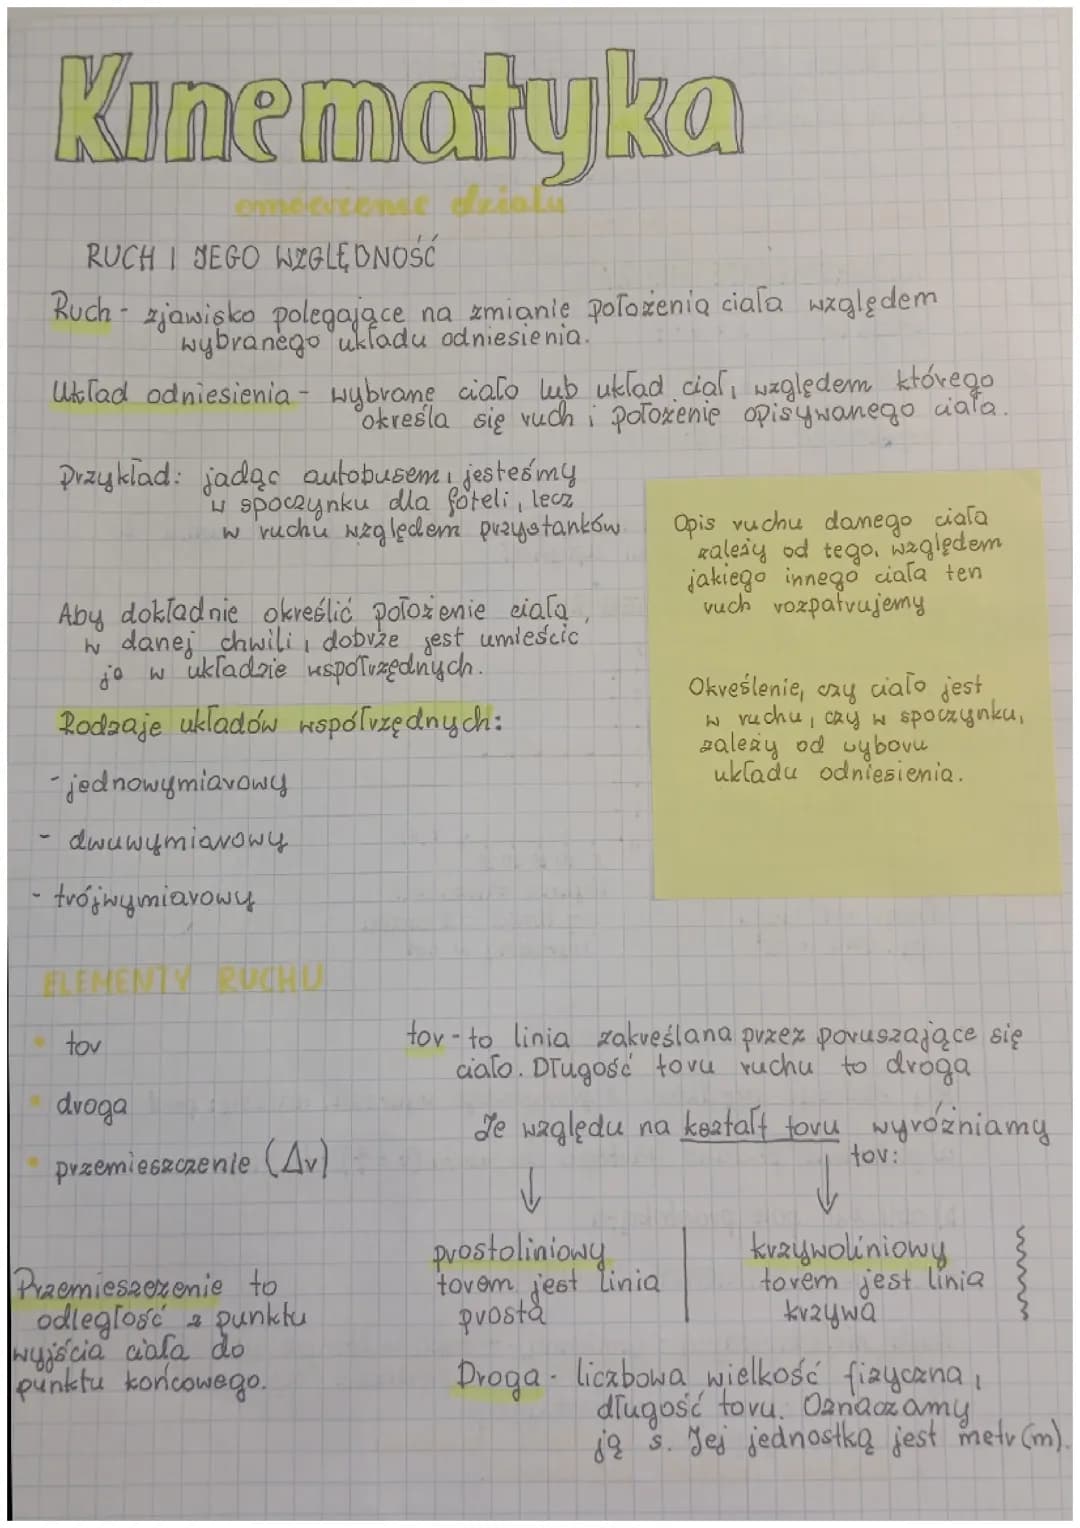 Kinematyka
omówienie działu
RUCH I JEGO WZGLĘDNOŚĆ
Ruch - zjawisko polegające na zmianie położenia ciała względem
wybranego układu odniesienia.
Układ odniesienia - wybrane ciało lub układ ciał, względem którego
określa się ruch i położenie opisywanego ciała.
Przykład: jadąc autobusem, jesteśmy
w spoczynku dla foteli, lecz
w ruchu względem przystanków
Opis ruchu danego ciała
zależy od tego, względem
jakiego innego ciała ten
ruch rozpatrujemy
Określenie, czy ciało jest
w ruchu, czy w spoczynku,
zależy od wyboru
układu odniesienia.
Aby dokładnie określić położenie ciała,
w danej chwili, dobrze jest umieścic
je w układzie współrzędnych.
Rodzaje układów współrzędnych:
- jednowymiarowy
- dwuwymiarowy
- trójwymiarowy
ELEMENTY RUCHU
• tor
• droga
• przemieszczenie (Δr)
Przemieszczenie to
odległość z punktu
wyjścia ciała do
punktu końcowego.
tor - to linia zakreślana przez poruszające się
ciało. Długość toru ruchu to droga
Ze względu na kształt toru wyróżniamy
tor:
↓ ↓
prostoliniowy
torem jest linia
prosta
krzywoliniowy
torem jest linia
krzywa
Droga - liczbowa wielkość fizyczna,
długość toru. Oznaczamy
ją s. Jej jednostką jest metr (m).